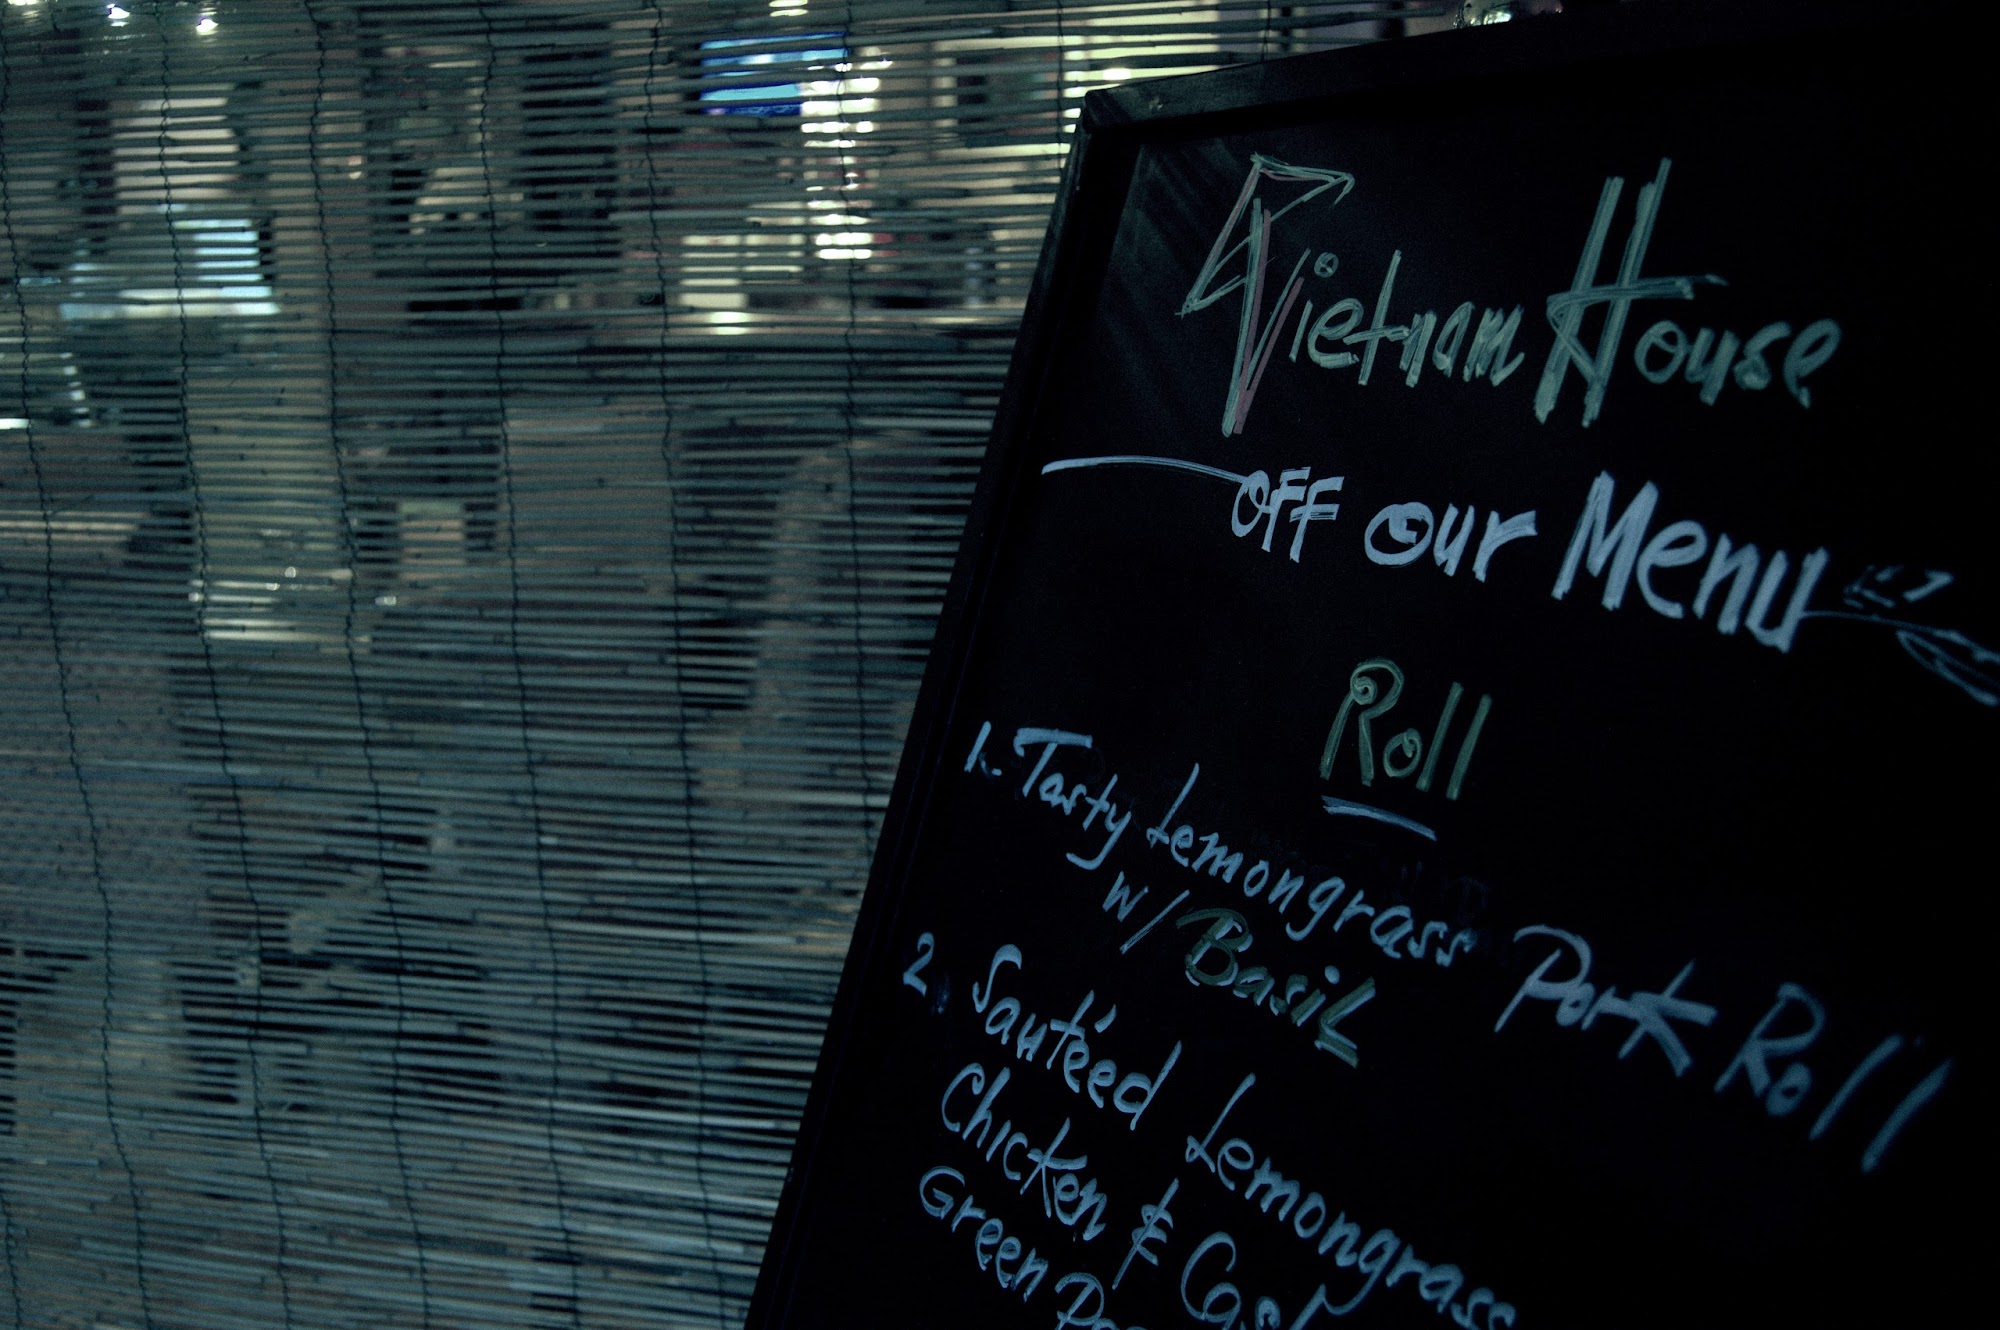 Vietnam House
OFF our Menu
Roll
1. Tasty Lemongrass Pork Roll
w/ Basil
2. Sautéed Lemongrass
Chicken &
Green